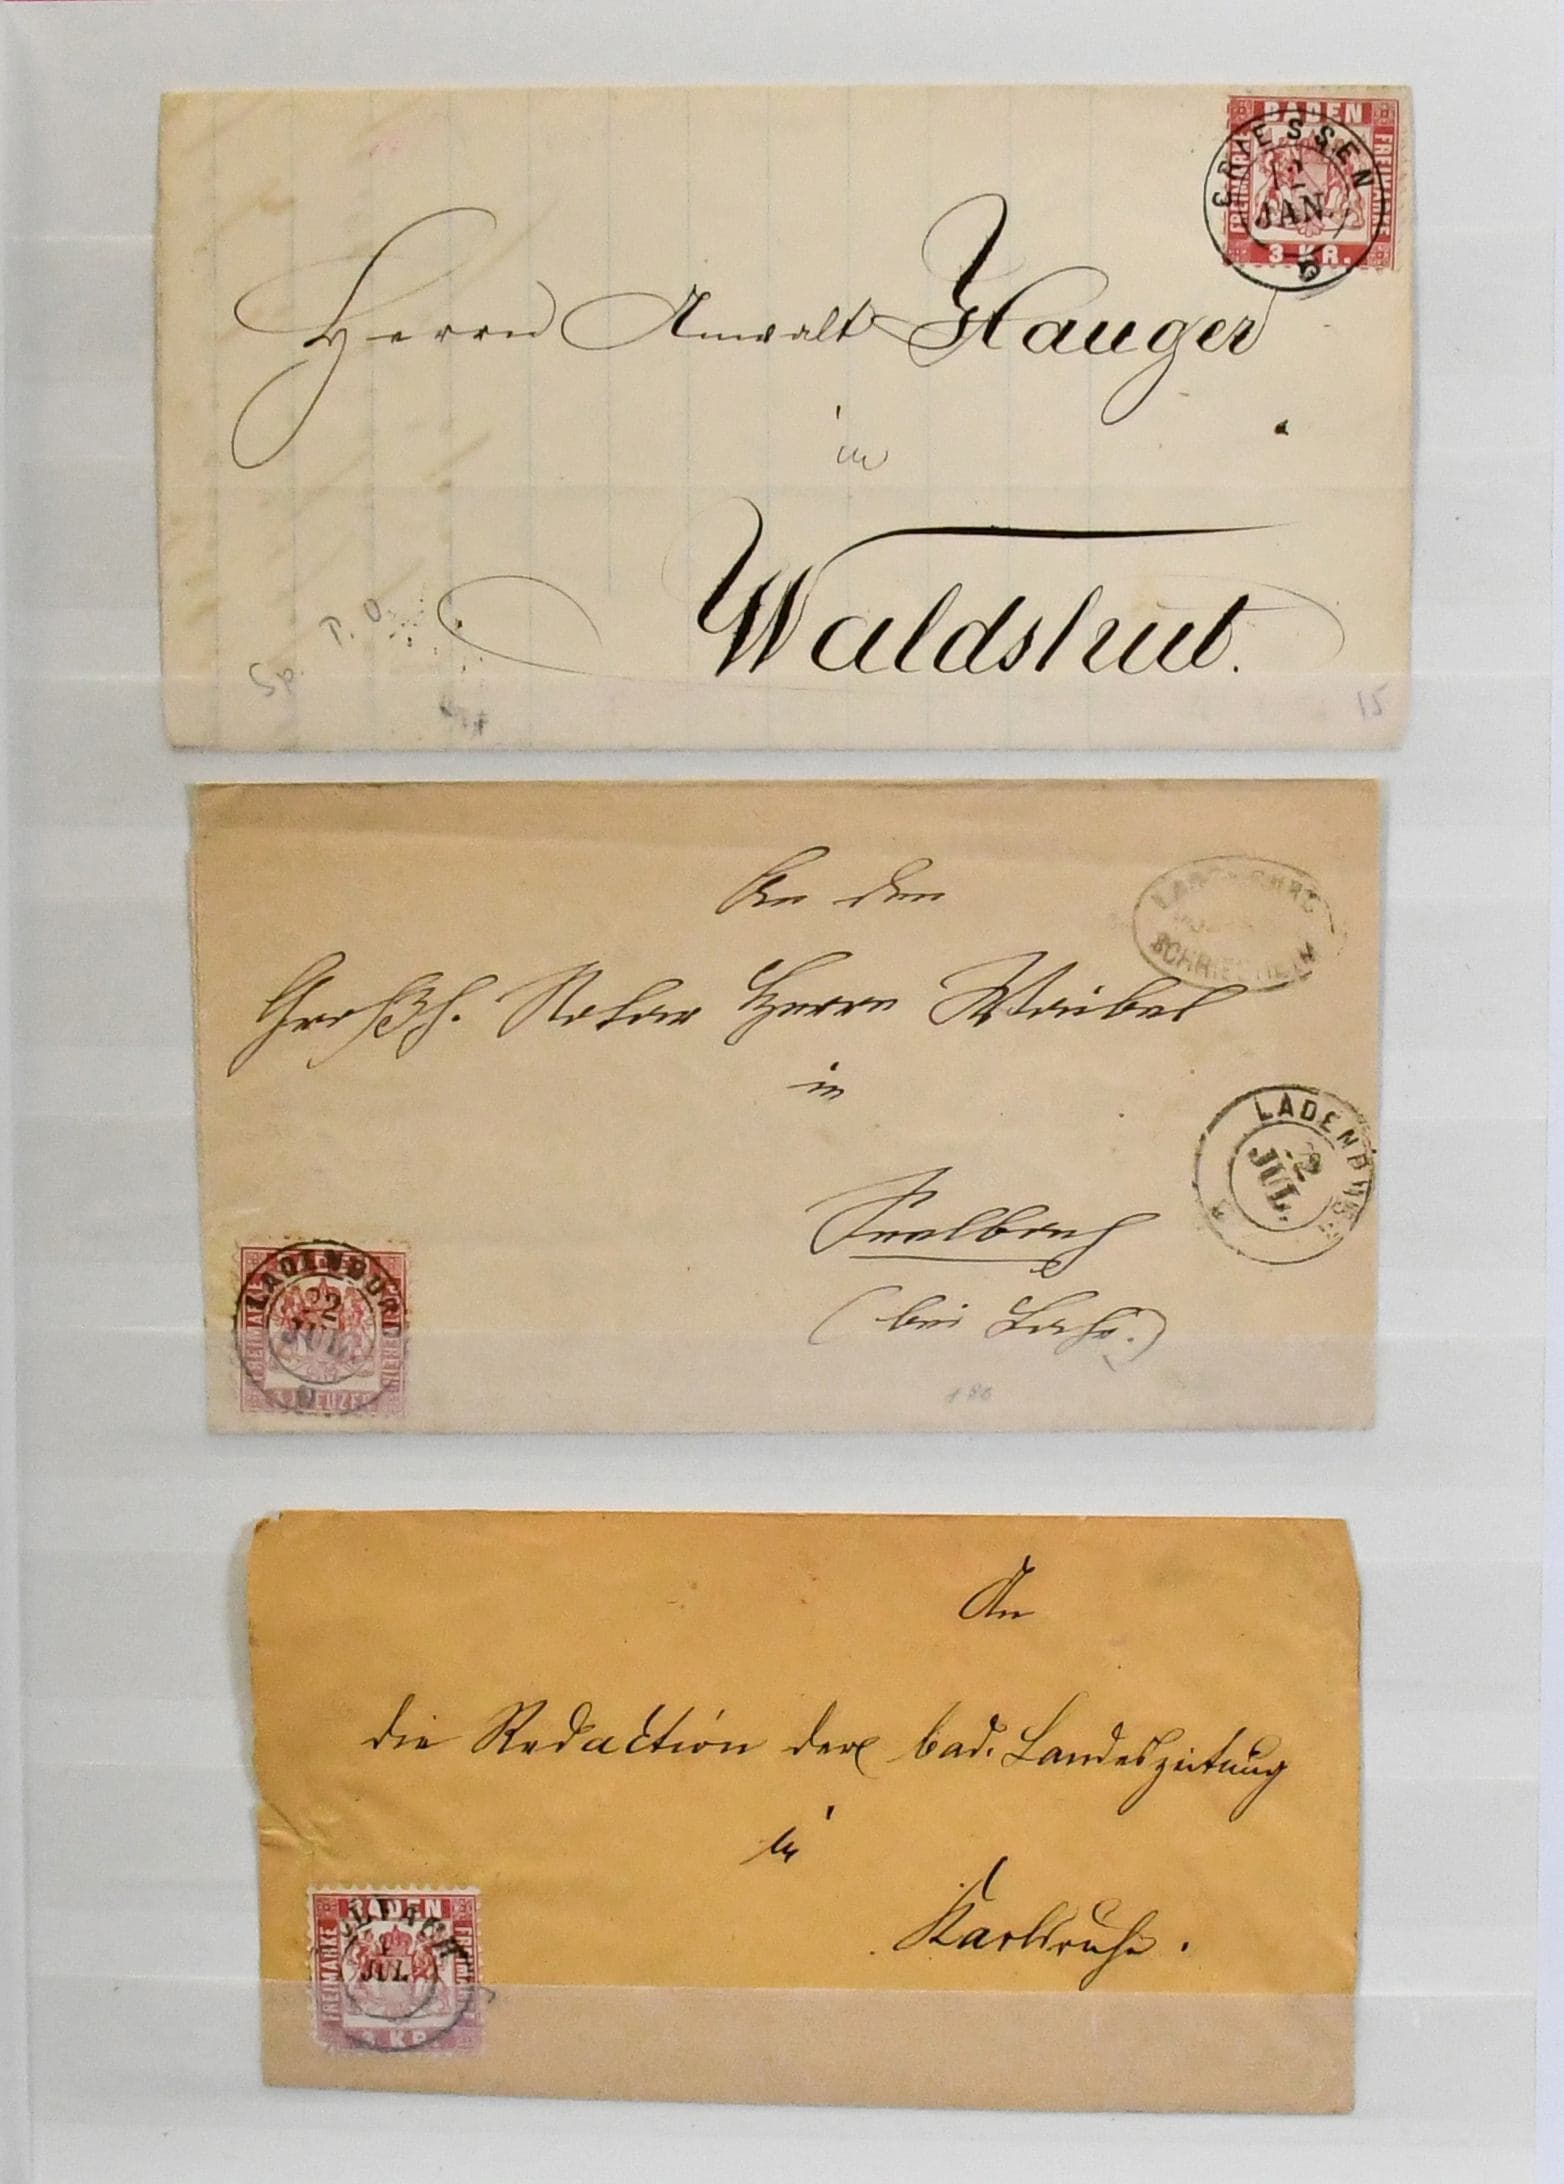 BADEN
FREIMARKE
FREIMARKE
3 KR.
GRIESSEN
2
JAN.
Herrn Anwalt Hauger
in
Waldshut.
P. O.
Sp.
15
An den
LADENBURG
SCHRIESHEIM
Großh. Notar Herrn Waibel
in
LADENBURG
22
JUL.
Seelbach
(bei Lahr.)
LADENBURG
22
JUL.
FREIMARKE
3 KREUZER
186
An
die Redaction der bad. Landeszeitung
in
Karlsruhe.
BADEN
FREIMARKE
FREIMARKE
3 KR.
JUL.